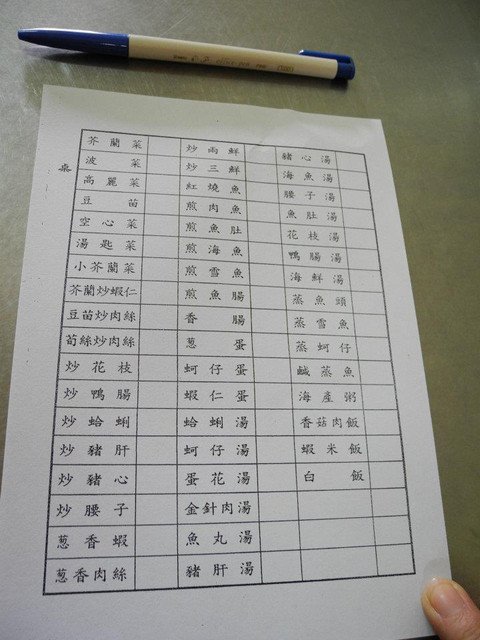 桌
芥蘭菜
波菜
高麗菜
豆苗
空心菜
湯匙菜
小芥蘭菜
芥蘭炒蝦仁
豆苗炒肉絲
筍絲炒肉絲
炒花枝
炒鴨腸
炒蛤蜊
炒豬肝
炒豬心
炒腰子
蔥香蝦
蔥香肉絲
炒兩鮮
炒三鮮
紅燒魚
煎肉魚
煎魚肚
煎海魚
煎雪魚
煎魚腸
香腸
蔥蛋
蚵仔蛋
蝦仁蛋
蛤蜊湯
蚵仔湯
蛋花湯
金針肉湯
魚丸湯
豬肝湯
豬心湯
海魚湯
腰子湯
魚肚湯
花枝湯
鴨腸湯
海鮮湯
蒸魚頭
蒸雪魚
蒸蚵仔
鹹蒸魚
海產粥
香菇肉飯
蝦米飯
白飯